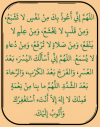 اللَّهُمَّ إِنِّي أَعُوذُ بِكَ مِنْ نَفْسٍ لَا تَشْبَعُ،
وَمِنْ قَلْبٍ لَا يَخْشَعُ، وَمِنْ عِلْمٍ لَا
يَنْفَعُ، وَمِنْ صَلَاةٍ لَا تُرْفَعُ، وَمِنْ دُعَاءٍ
لَا يُسْمَعُ. اللَّهُمَّ إِنِّي أَسْأَلُكَ الْيُسْرَ، بَعْدَ
الْعُسْرِ، وَالْفَرَجَ بَعْدَ الْكَرْبِ، وَالرَّخَاءَ
بَعْدَ الشِّدَّةِ. اللَّهُمَّ مَا بِنَا مِنْ نِعْمَةٍ
فَمِنْكَ لَا إِلَهَ إِلَّا أَنْتَ، أَسْتَغْفِرُكَ
وَأَتُوبُ إِلَيْكَ.